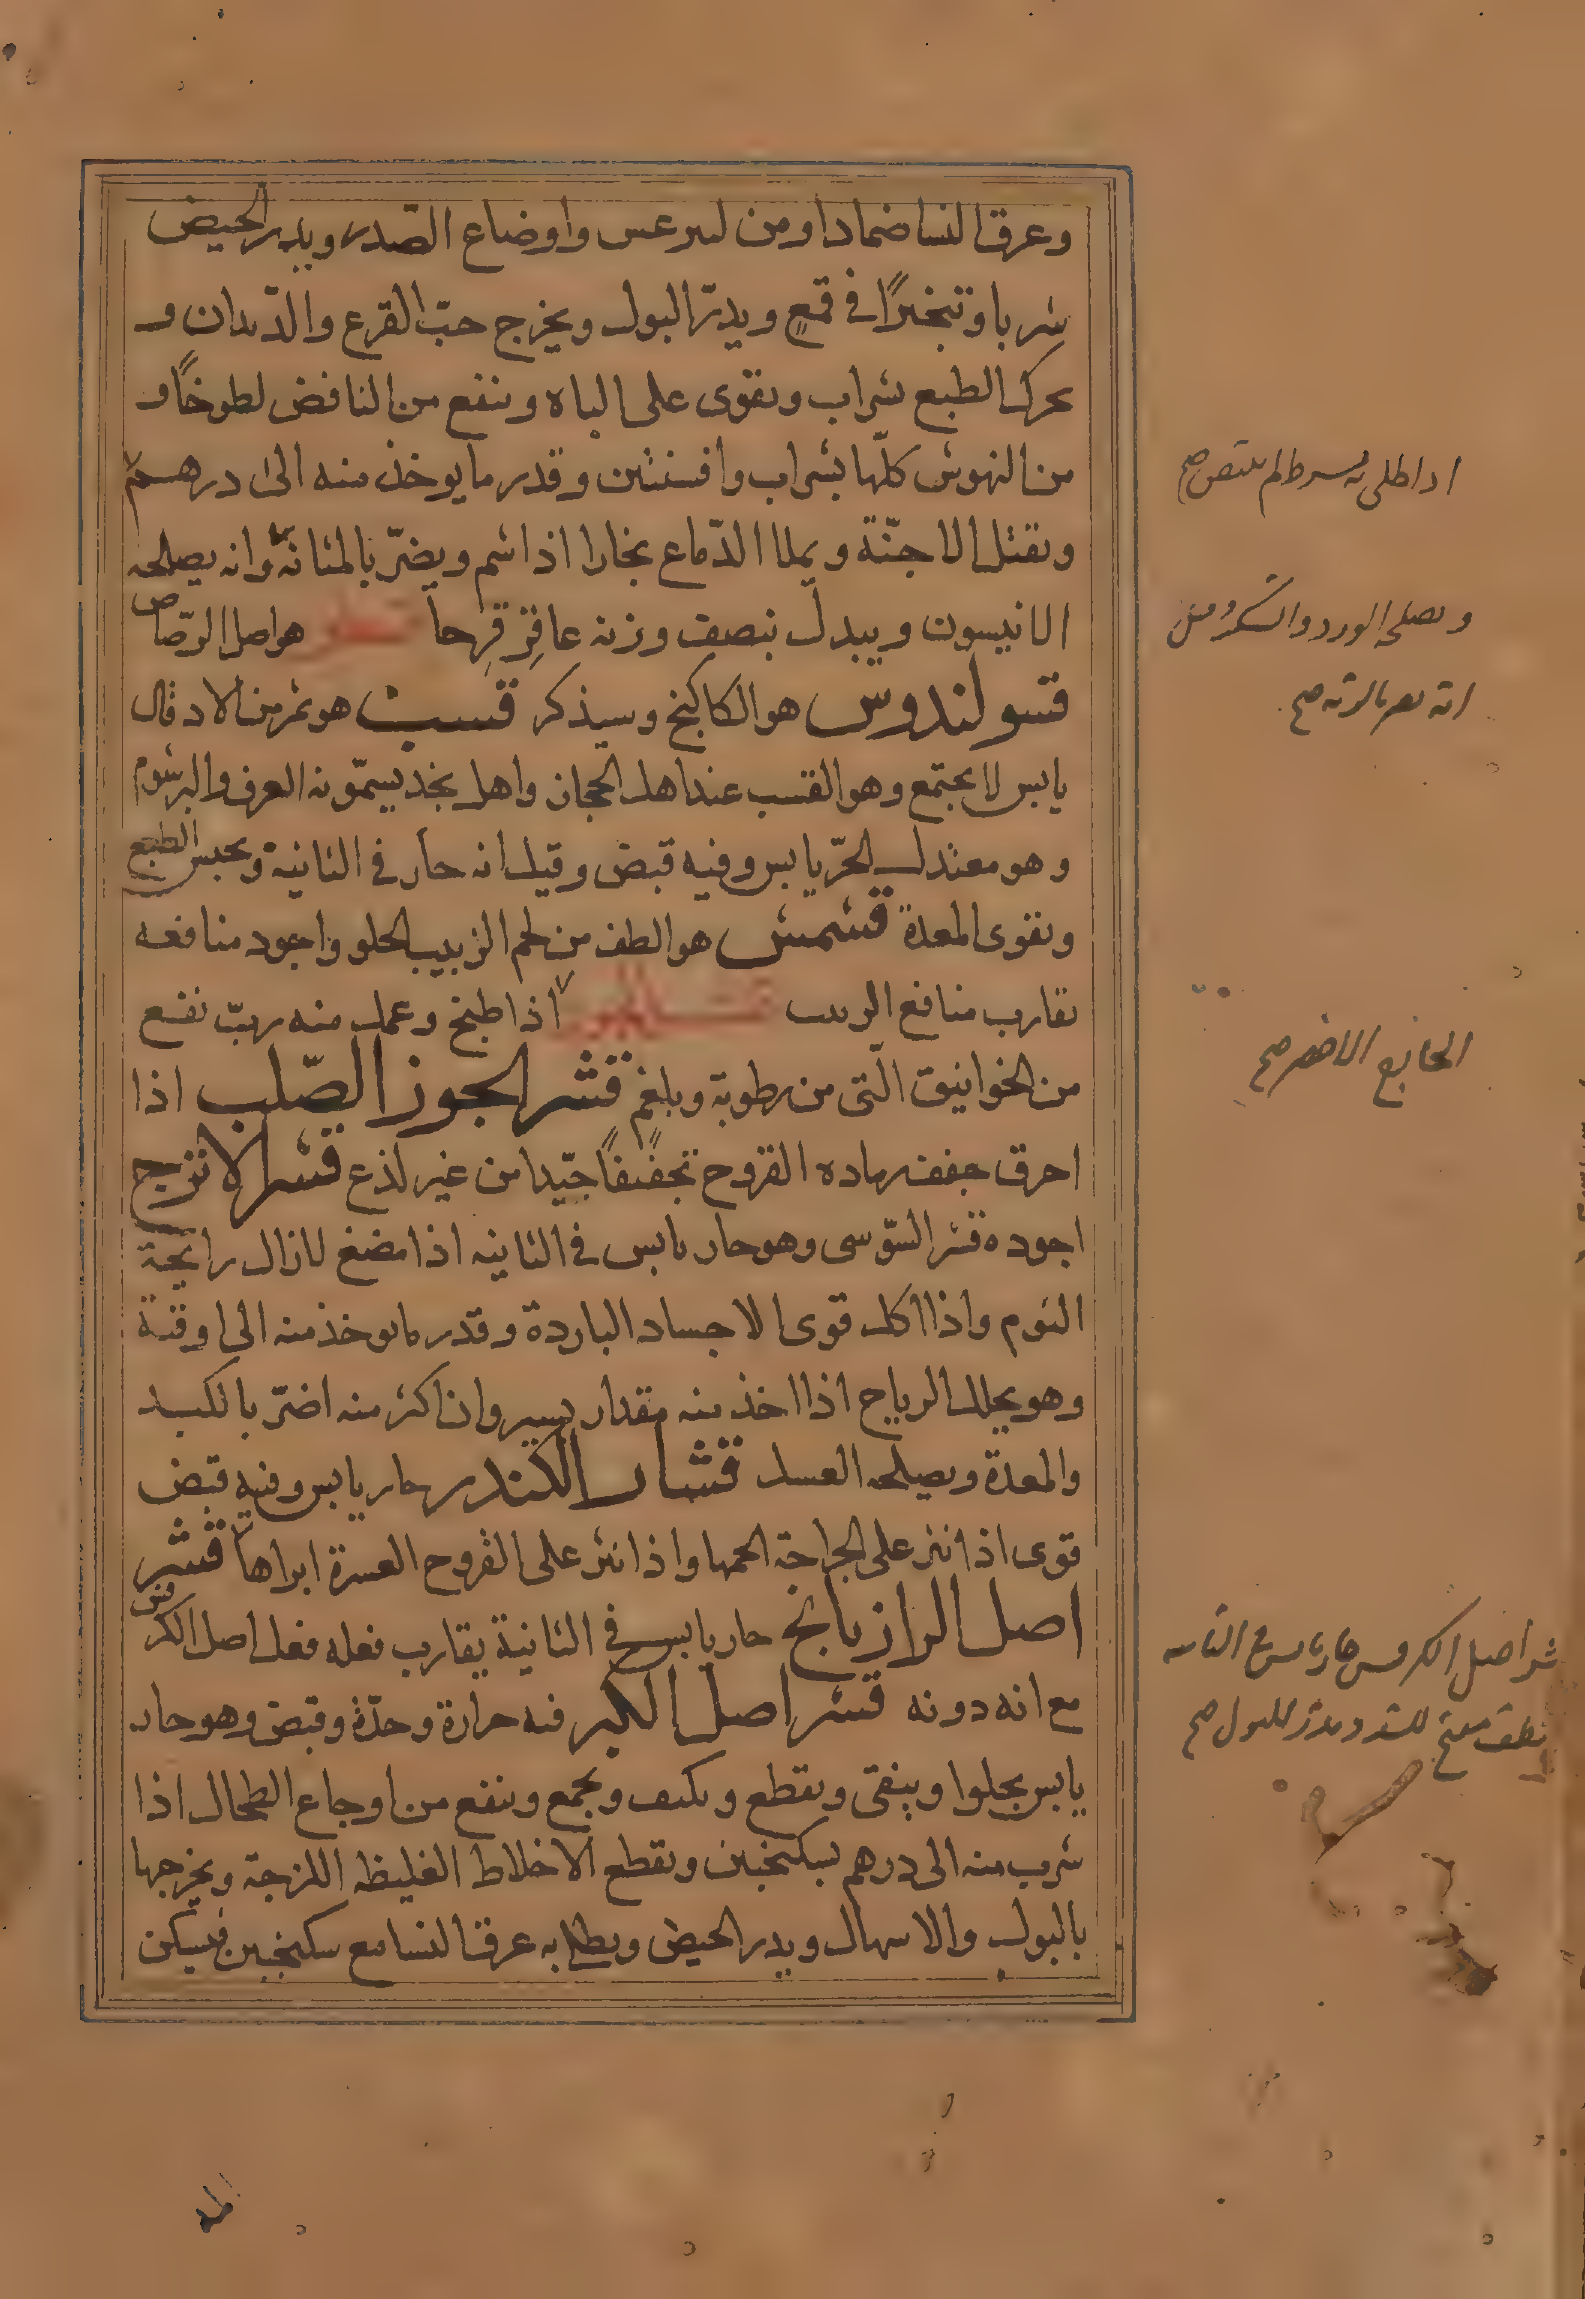 وعرق النسا ضمادا ومن ليرغس واوضاع الصّدر ويدر الحيض
شربا وتبخيرًا في قمع ويدرّ البول ويخرج حبّ القرع والدّيدان و
يحرك الطبع بشراب ويقوى على الباه وينفع من النافض لطوخًا و
من النهوش كلّها بشراب وافسنتين وقدر ما يوخذ منه الى درهم
ويقتل الاجنّة ويملا الدّماغ بخارا اذا شم ويضرّ بالمثانة وانه يصلحه
الانيسون ويبدل بنصف وزنه عاقِر قِرحا هو اصل الرّصاص
قسولندوس هو الكاكنج وسيذكر قسب هو تمر من الادقال
يابس لا يجتمع وهو القسب عند اهل الحجاز واهل نجد يسمّونه العرف والبرشوم
وهو معتدل الحرّ يابس وفيه قبض وقيل انه حار في الثانية ويحبس الطبع
ويقوى المعدة قشمش هو الطف من لحم الزبيب الحلو واجود منافعه
تقارب منافع الزبيب اذا طبخ وعمل منه ربّ نفع
من الخوانيق الّتى من رطوبة وبلغم قشر الجوز الصّلب اذا
احرق جفف رماده القروح تجفيفًا جيّدا من غير لذع قشر الاترج
اجوده قشر السّوسى وهو حار يابس في الثانيه اذا مضغ لازال رايحة
الثوم واذا اكل قوى الاجساد الباردة وقدر ما يوخذ منه الى اوقية
وهو يحلل الرياح اذا اخذ منه مقدار يسير وان اكثر منه اضرّ بالكبد
والمعدة ويصلحه العسل قشار الكندر حار يابس وفيه قبض
قوى اذا نثر على الجراحة الحمها واذا نثر على القروح العسرة ابراها قشر
اصل الرازيانج حار يابس في الثانية يقارب فعله فعل اصل الكرفس
مع انه دونه قشر اصل الكبر فيه حرارة وحدّة وقبض وهو حار
يابس يجلوا وينقى ويقطع ويكثف ويجمع وينفع من اوجاع الطحال اذا
شرب منه الى درهم بسكنجبين ويقطع الاخلاط الغليظه اللزجة ويخرجها
بالبول والاسهال ويدر الحيض ويطلا به عرق النسا مع سكنجبين فيسكن
اذا طلى به صح
ويصلحه الورد والسكر
انه يضر بالريه صح
صح
قشر اصل الكرفس حار يابس في الثانيه
مفتح للسدد ومدر للبول صح